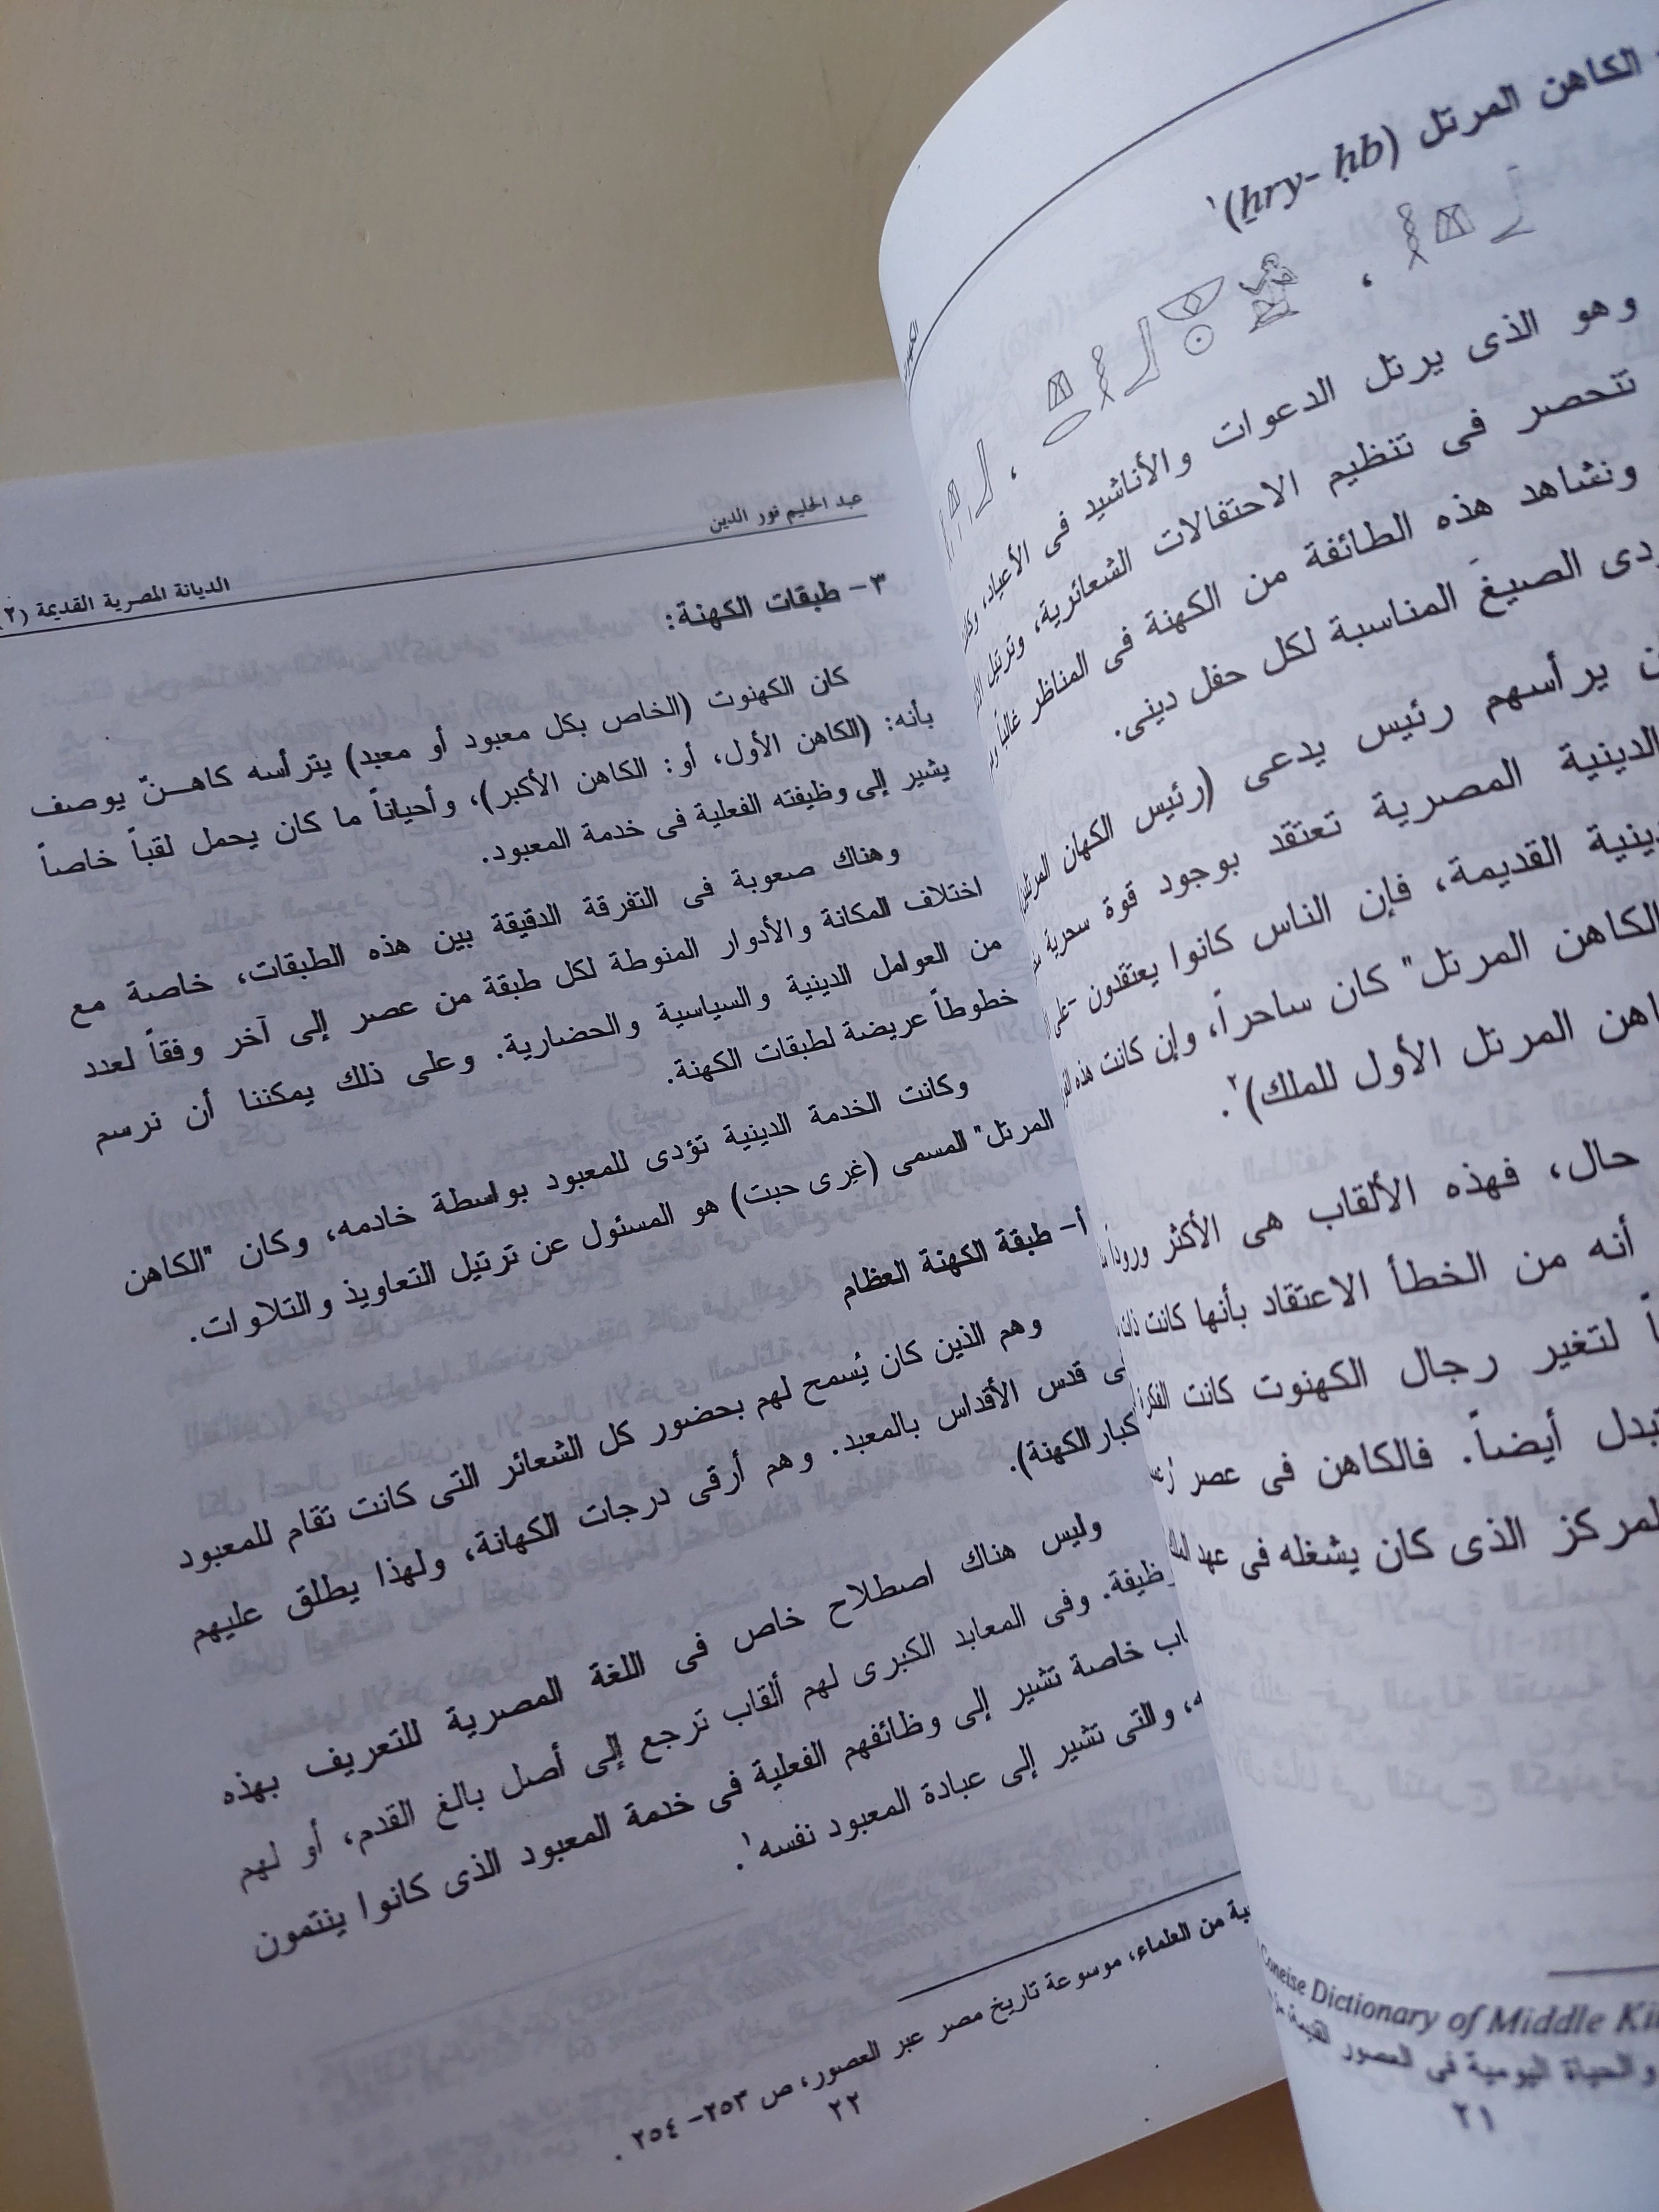 الكاهن المرتل (ḫry- ḥb)¹
وهو الذى يرتل الدعوات والأناشيد فى الأعياد، وكان
تنحصر فى تنظيم الاحتفالات الشعائرية، وترتيل
ونشاهد هذه الطائفة من الكهنة فى المناظر غالباً
الصيغ المناسبة لكل حفل دينى.
يرأسهم رئيس يدعى (رئيس الكهان المرتلين
الدينية المصرية تعتقد بوجود قوة سحرية
القديمة، فإن الناس كانوا يعتقدون -على
الكاهن المرتل" كان ساحراً، وإن كانت هذه
المرتل الأول للملك)².
حال، فهذه الألقاب هى الأكثر وروداً
أنه من الخطأ الاعتقاد بأنها كانت ذات
لتغير رجال الكهنوت كانت
أيضاً. فالكاهن فى عصر
المركز الذى كان يشغله فى عهد
Concise Dictionary of Middle
والحياة اليومية فى العصور القديمة
٢١
عبد الحليم نور الدين
الديانة المصرية القديمة (٢)
٣- طبقات الكهنة:
كان الكهنوت (الخاص بكل معبود أو معبد) يترأسه كاهـنٌ يوصف
بأنه: (الكاهن الأول، أو: الكاهن الأكبر)، وأحياناً ما كان يحمل لقباً خاصاً
يشير إلى وظيفته الفعلية فى خدمة المعبود.
وهناك صعوبة فى التفرقة الدقيقة بين هذه الطبقات، خاصة مع
اختلاف المكانة والأدوار المنوطة لكل طبقة من عصر إلى آخر وفقاً لعدد
من العوامل الدينية والسياسية والحضارية. وعلى ذلك يمكننا أن نرسم
خطوطاً عريضة لطبقات الكهنة.
وكانت الخدمة الدينية تؤدى للمعبود بواسطة خادمه، وكان "الكاهن
المرتل" المسمى (غرى حبت) هو المسئول عن ترتيل التعاويذ والتلاوات.
أ- طبقة الكهنة العظام
وهم الذين كان يُسمح لهم بحضور كل الشعائر التى كانت تقام للمعبود
قدس الأقداس بالمعبد. وهم أرقى درجات الكهانة، ولهذا يطلق عليهم
كبار الكهنة).
وليس هناك اصطلاح خاص فى اللغة المصرية للتعريف بهذه
وظيفة. وفى المعابد الكبرى لهم ألقاب ترجع إلى أصل بالغ القدم، أو لهم
خاصة تشير إلى وظائفهم الفعلية فى خدمة المعبود الذى كانوا ينتمون
والتى تشير إلى عبادة المعبود نفسه¹.
من العلماء، موسوعة تاريخ مصر عبر العصور، ص ٢٥٣- ٢٥٤ .
٢٢